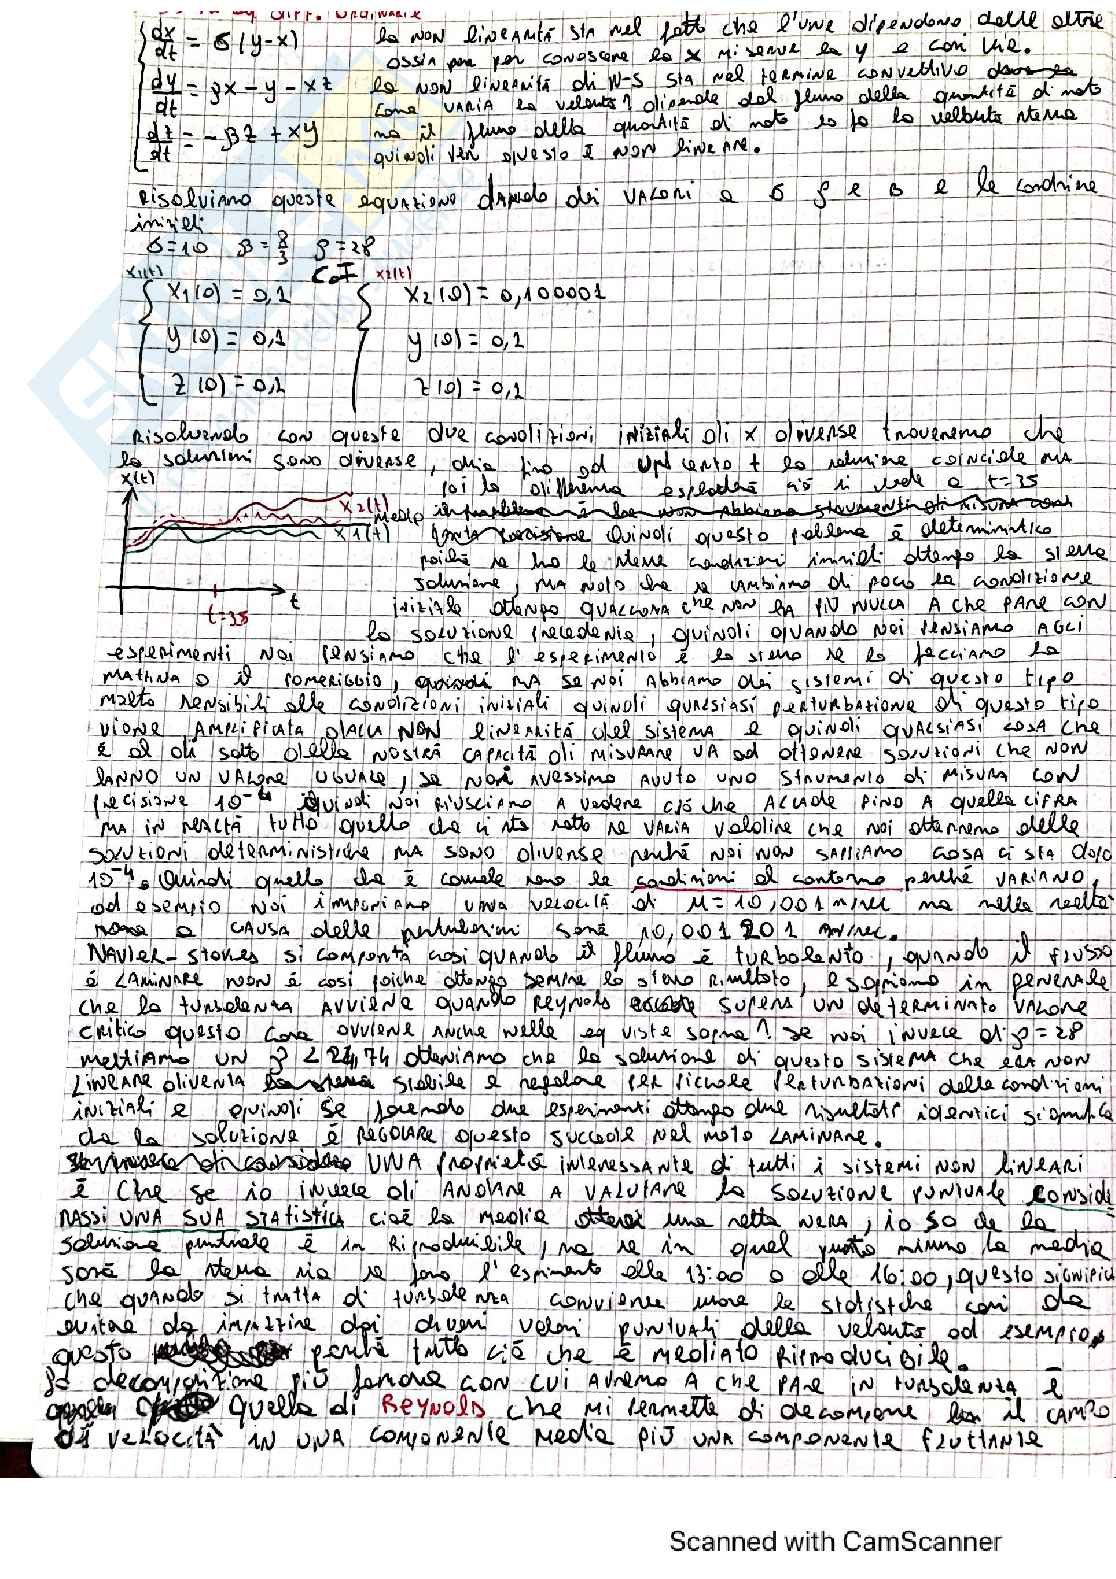 EQ DIFF. ORDINARIE
dx/dt = σ(y-x) la NON linearità sta nel fatto che l'una dipendono dalle altre
ossia per conoscere la x mi serve la y e così via.
dy/dt = ρx - y - xz la NON linearità di N-S sta nel termine convettivo
come VARIA la velocità? dipende dal flusso della quantità di moto
dz/dt = -βz + xy ma il flusso della quantità di moto lo fa la velocità stessa
quindi per questo è NON lineare.
Risolviamo queste equazione dando dei VALORI a σ ρ e β e le condizione
iniziali
σ=10 β=8/3 ρ=28
x1(t) C.I x2(t)
x1(0) = 0,1 x2(0) = 0,100001
y(0) = 0,1 y(0) = 0,1
z(0) = 0,1 z(0) = 0,1
Risolvendo con queste due condizioni iniziali di x diverse troveremo che
le soluzioni sono diverse, cioè fino ad un certo t la soluzione coincide ma
x(t) poi la differenza esploderà ciò si vede a t=35
x2(t) media in problema è che non abbiamo strumenti di misura con
x1(t) tanta precisione Quindi questo problema è deterministico
poiché se ho le stesse condizioni iniziali ottengo la stessa
soluzione, ma noto che se cambiamo di poco la condizione
t iniziale ottengo qualcosa che non ha più nulla a che fare con
t=35 la soluzione precedente, quindi quando noi pensiamo agli
esperimenti noi pensiamo che l'esperimento è lo stesso se lo facciamo la
mattina o il pomeriggio, quindi ma se noi abbiamo dei sistemi di questo tipo
molto sensibili alle condizioni iniziali quindi qualsiasi perturbazione di questo tipo
viene amplificata dalla NON linearità del sistema e quindi qualsiasi cosa che
è al di sotto della nostra capacità di misurare va ad ottenere soluzioni che non
hanno un valore uguale, se noi avessimo avuto uno strumento di misura con
precisione 10⁻⁴ quindi noi riusciamo a vedere ciò che accade fino a quella cifra
ma in realtà tutto quello che ci sta sotto se varia che noi otterremo delle
soluzioni deterministiche ma sono diverse perché noi non sappiamo cosa ci sta dopo
10⁻⁴. Quindi quello che è sono le condizioni al contorno perché VARIANO,
ad esempio noi imponiamo una velocità di u=10,001 m/sec ma nella realtà
a causa delle perturbazioni sarà 10,001201 m/sec.
Navier-Stokes si comporta così quando il flusso è turbolento, quando il flusso
è laminare non è così poiché ottengo sempre lo stesso risultato, e sappiamo in generale
che la turbolenza avviene quando Reynols supera un determinato valore
critico questo cosa avviene anche nelle eq viste sopra? Se noi invece di ρ=28
mettiamo un ρ < 24,74 otteniamo che la soluzione di questo sistema che era non
lineare diventa stabile e regolare per piccole perturbazioni delle condizioni
iniziali e quindi se facendo due esperimenti ottengo due risultati identici significa
che la soluzione è regolare questo succede nel moto laminare.
UNA proprietà interessante di tutti i sistemi non lineari
è che se io invece di andare a valutare la soluzione puntuale conside
rassi una sua statistica cioè la media una retta nera, io so che la
soluzione puntuale è in riproducibile, ma se in quel punto la media
sarà la stessa sia se faccio l'esperimento alle 13:00 o alle 16:00, questo significa
che quando si tratta di turbolenza conviene usare le statistiche così da
evitare da impazzire dai diversi valori puntuali della velocità ad esempio,
questo perché tutto ciò che è mediato riproducibile.
La decomposizione più famosa con cui avremo a che fare in turbolenza è
quella di Reynols che mi permette di decomporre il campo
di velocità in una componente media più una componente fluttuante
Scanned with CamScanner